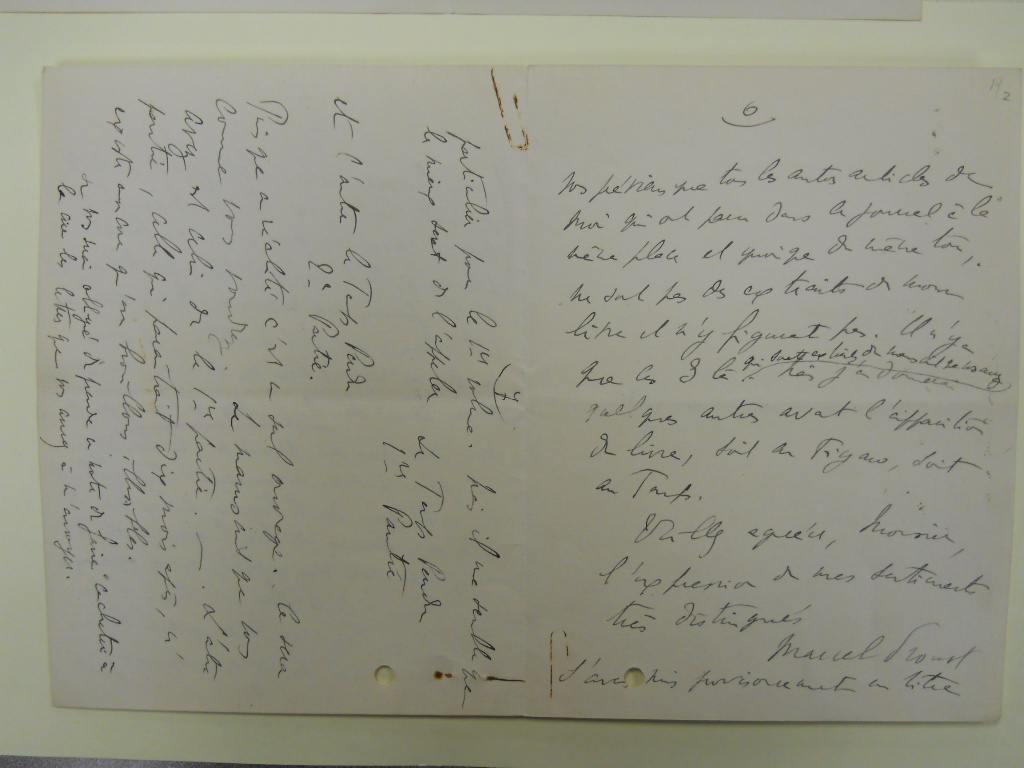 19
2
6
que tous les autres articles de
moi qui ont paru dans le journal à la
même place et quoique du même ton,
ne sont pas des extraits de mon
livre et n'y figurent pas. Il n'y a
que les 3 là
quelques autres avant l'apparition
du livre, soit au Figaro, soit
au Temps.
Veuillez agréer, Monsieur,
l'expression de mes sentiments
très distingués
Marcel Proust
J'avais mis provisoirement un titre
7
particulier pour le 1er volume. Mais il me semble que
le mieux serait de l'appeler Le Temps Perdu
1re Partie
et l'autre le Temps Perdu
2e Partie.
Puisque en réalité c'est un seul ouvrage. Ce sera
comme vous voudrez. Le manuscrit que vous
avez est celui de la 1re partie. — L'autre
partie, celle qui paraîtrait dix mois après, n'
existe encore qu'en brouillons illisibles.
Je me suis obligé de joindre
la cire les lettres que vous aurez à m'envoyer.